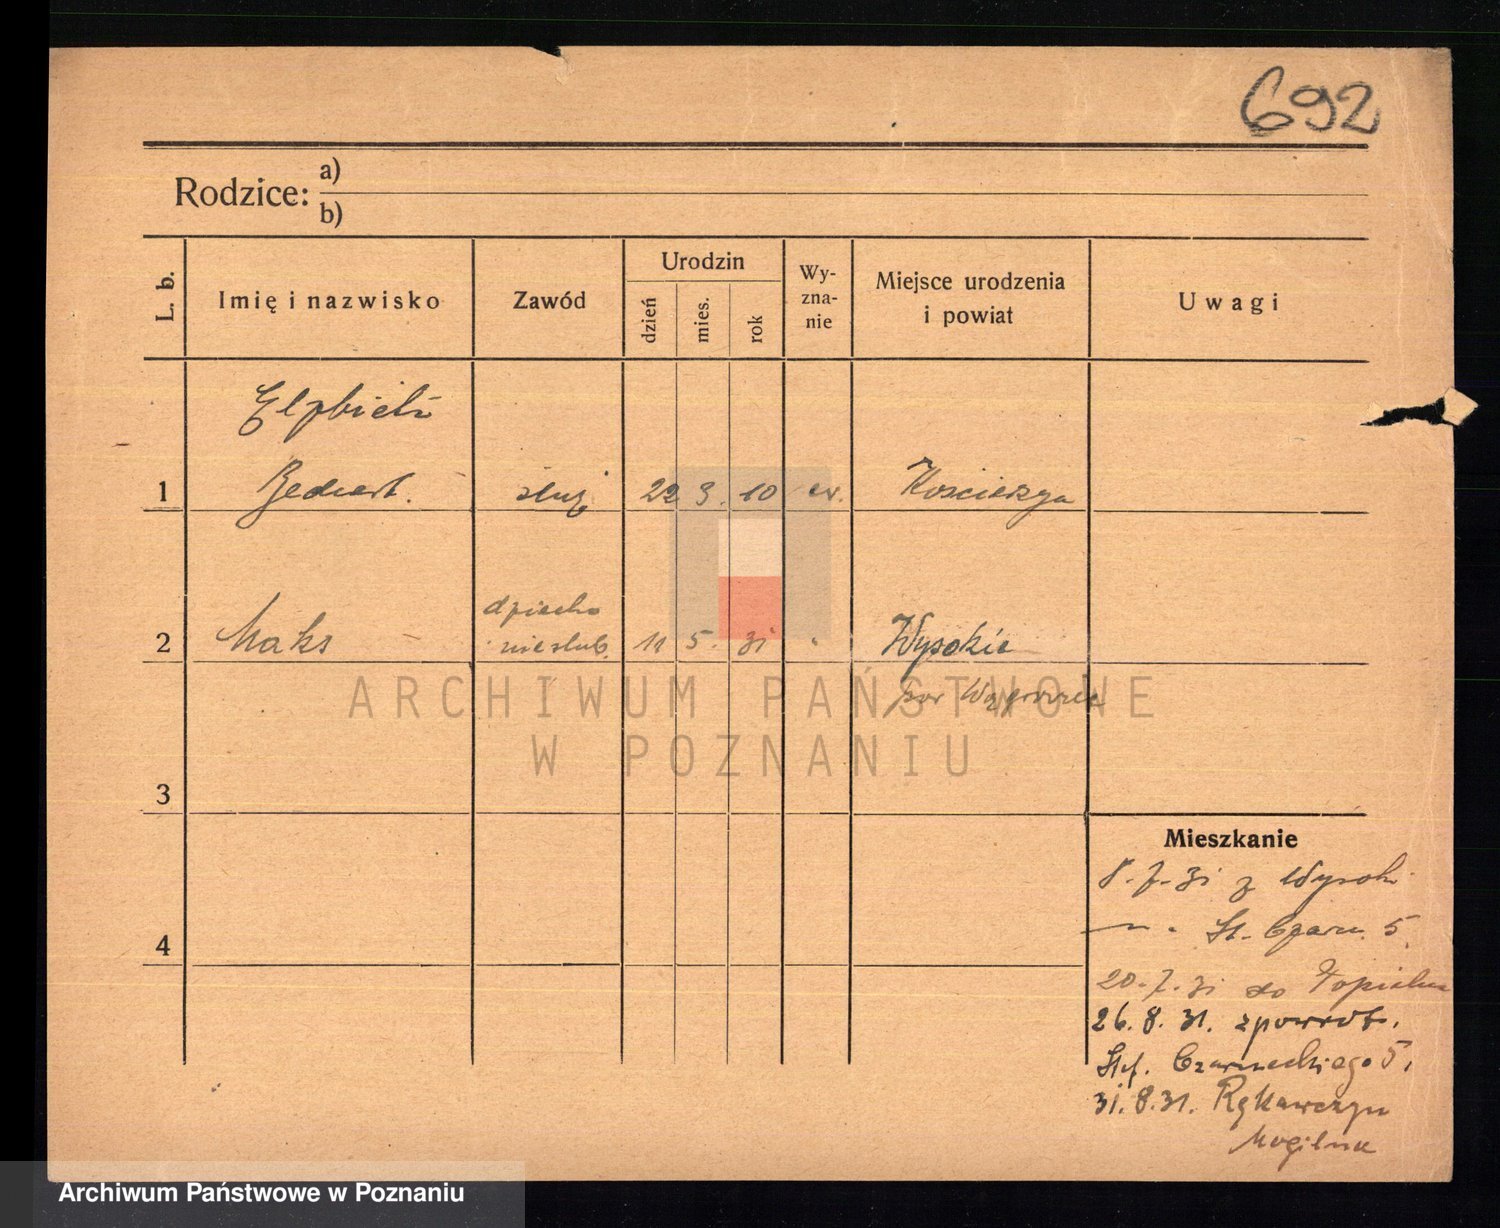 692
Rodzice: a)
b)
L. b.
Imię i nazwisko
Zawód
Urodzin
dzień
mies.
rok
Wy-
zna-
nie
Miejsce urodzenia
i powiat
Uwagi
Elzbieta
1 służ 22 3. 10 ew. Kościerzyna
dziecko
2 Maks nieślub. 11 5. 31 " Wysokie
pow Wągrowiec
3
4
Mieszkanie
8.7.31 z Wysoki
—"— St. Czarn. 5.
20.7.31 do
26.8.31. zpowrot.
Stef. Czarneckiego 5.
31.8.31. Rękawczyn
Mogilno
ARCHIWUM PAŃSTWOWE
W POZNANIU
Archiwum Państwowe w Poznaniu